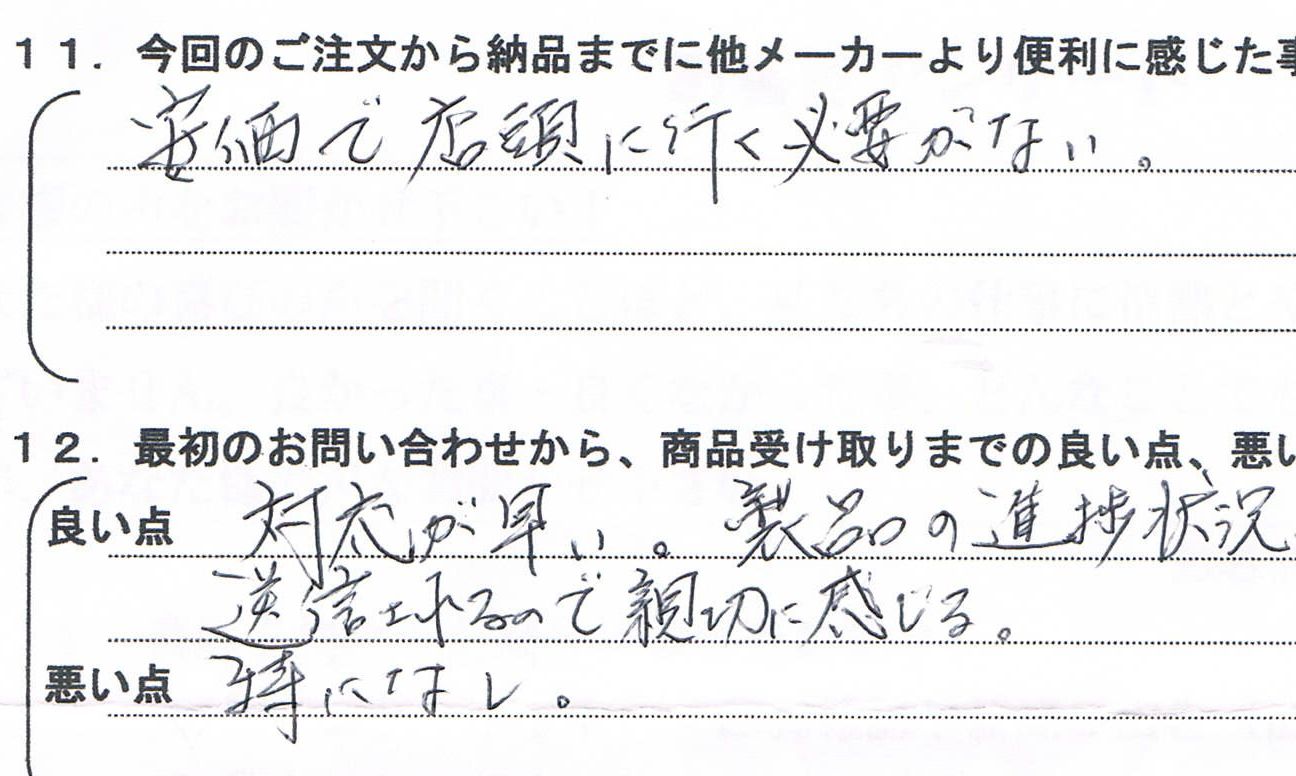 １１．今回のご注文から納品までに他メーカーより便利に感じた事
安価で店頭に行く必要がない。
１２．最初のお問い合わせから、商品受け取りまでの良い点、悪い
良い点 対応が早い。製品の進捗状況
送信されるので親切に感じる。
悪い点 特になし。